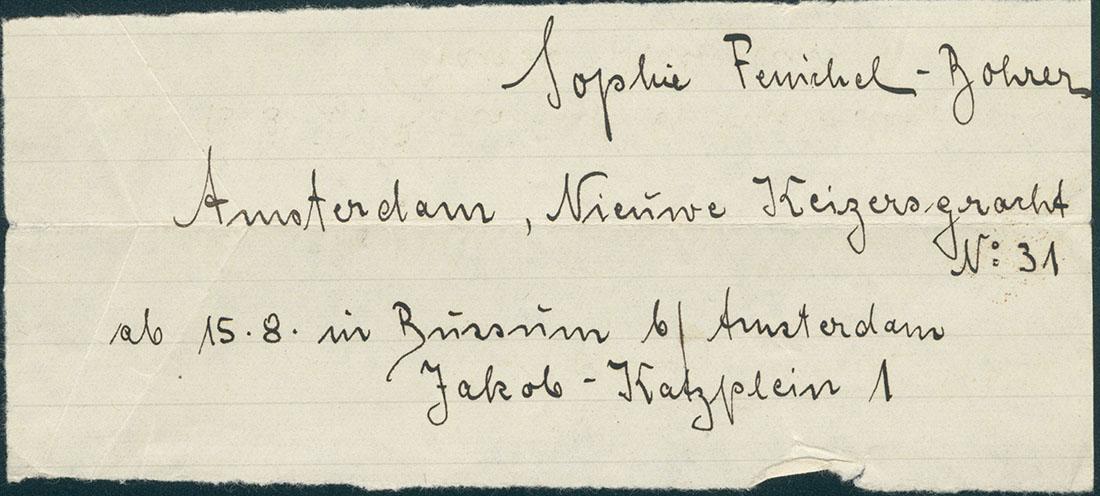 Sophie Fenichel - Bohrer
Amsterdam, Nieuwe Keizersgracht
No: 31
ab 15.8. in Bussum b/ Amsterdam
Jakob - Katzplein 1